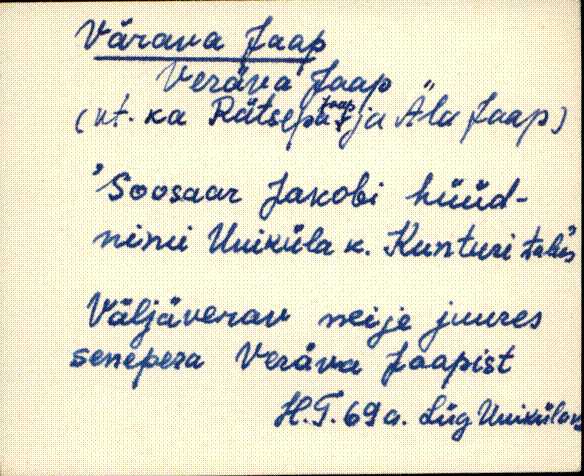 Värava Jaap
Veräva Jaap
(vt. ka Rätsepä Jaap ja Äla Jaap)
'Soosaar Jakobi hüüd-
nimi Uniküla k. Kunturi talus
Väljäverav meije juures
senepera Veräva Jaapist
H.T. 69a. Lüg Unikülas